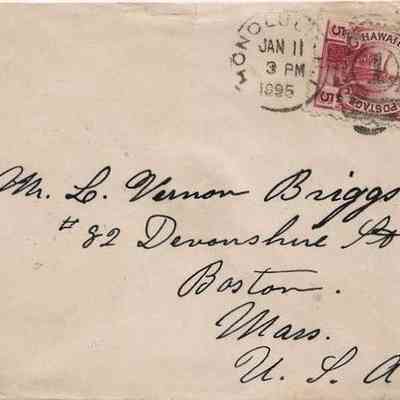 HONOLULU
JAN 11
3 PM
1895
HAWAII
5 5
POSTAGE
Mr. L. Vernon Briggs
# 82 Devonshire St
Boston.
Mass.
U. S. A